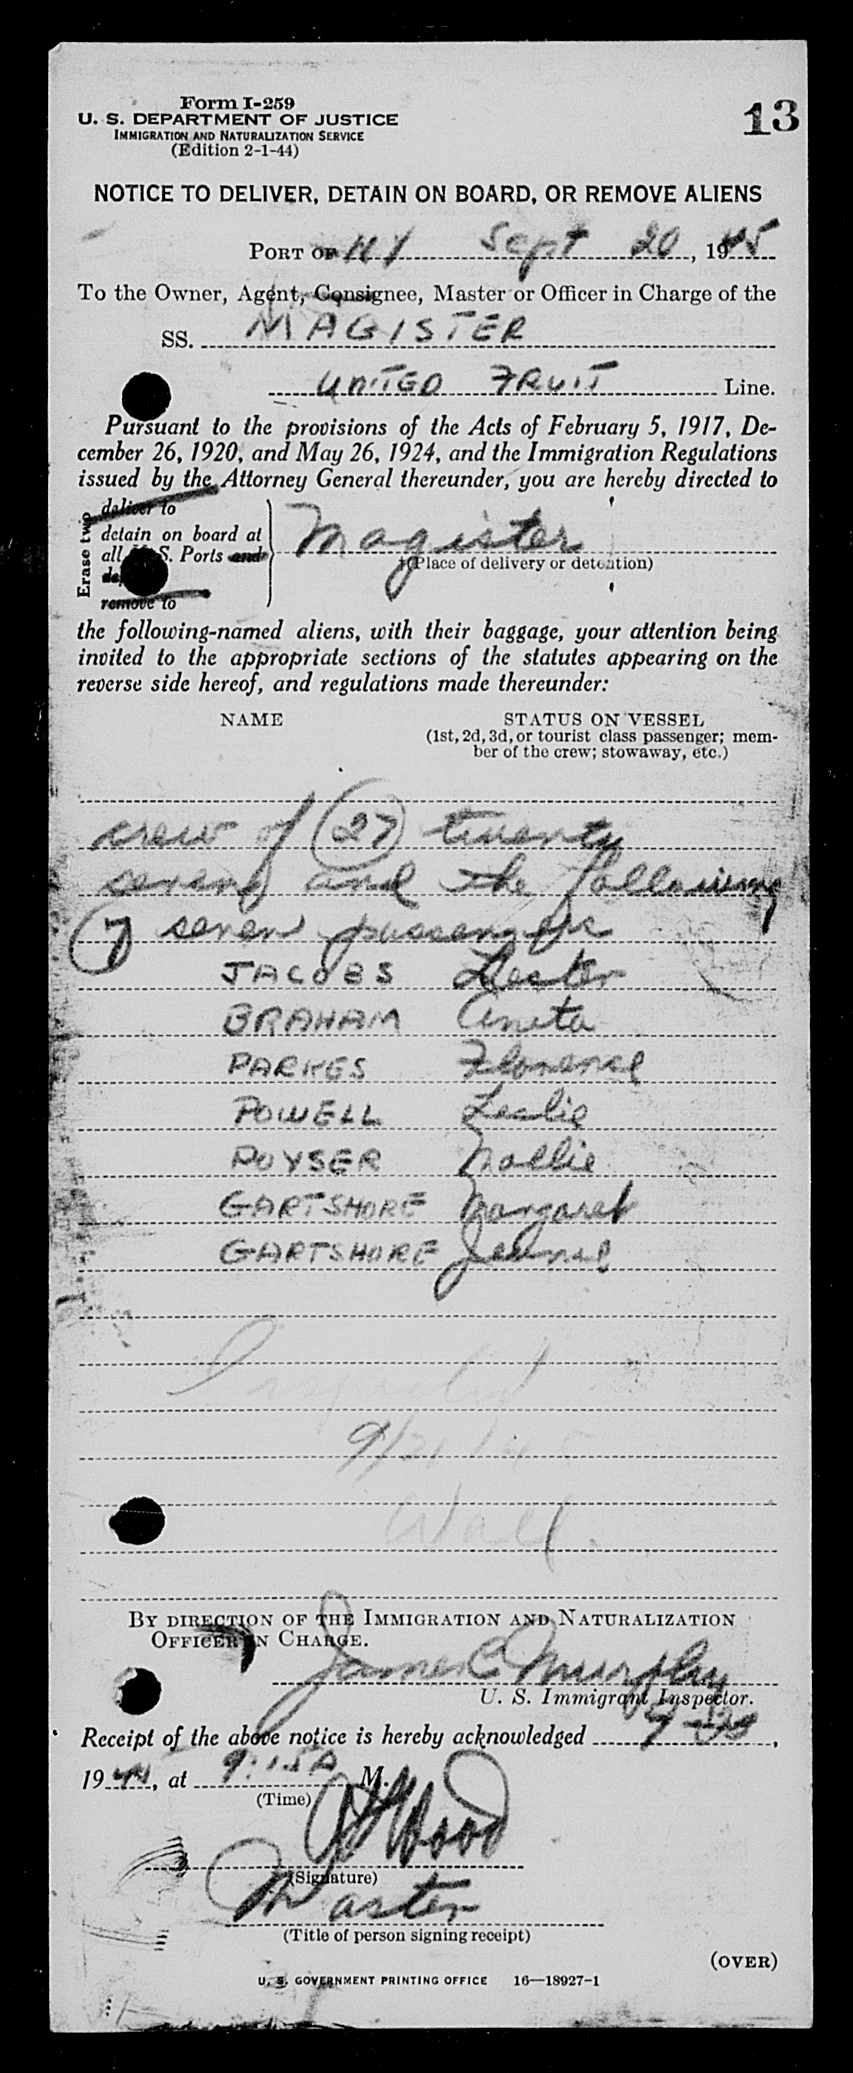 Form I-259
U. S. DEPARTMENT OF JUSTICE
IMMIGRATION AND NATURALIZATION SERVICE
(Edition 2-1-44)
13
NOTICE TO DELIVER, DETAIN ON BOARD, OR REMOVE ALIENS
PORT OF NY Sept 20, 1945
To the Owner, Agent, Consignee, Master or Officer in Charge of the
SS. MAGISTER
UNITED FRUIT Line.
Pursuant to the provisions of the Acts of February 5, 1917, De-
cember 26, 1920, and May 26, 1924, and the Immigration Regulations
issued by the Attorney General thereunder, you are hereby directed to
Erase two
deliver to
detain on board at
all U. S. Ports and
remove to
Magister
(Place of delivery or detention)
the following-named aliens, with their baggage, your attention being
invited to the appropriate sections of the statutes appearing on the
reverse side hereof, and regulations made thereunder:
NAME STATUS ON VESSEL
(1st, 2d, 3d, or tourist class passenger; mem-
ber of the crew; stowaway, etc.)
crew of (27) twenty
seven and the following
(7) seven passengers
JACOBS Lester
BRAHAM Anita
PARKES Florence
POWELL Leslie
POYSER Mollie
GARTSHORE Margaret
GARTSHORE
Inspected
9/21/45
Wall.
BY DIRECTION OF THE IMMIGRATION AND NATURALIZATION
OFFICER IN CHARGE.
James C Murphy
U. S. Immigrant Inspector.
Receipt of the above notice is hereby acknowledged 9-20,
19, at 9:15A M.
(Time)
Wood
(Signature)
Master
(Title of person signing receipt)
(OVER)
U. S. GOVERNMENT PRINTING OFFICE 16—18927-1